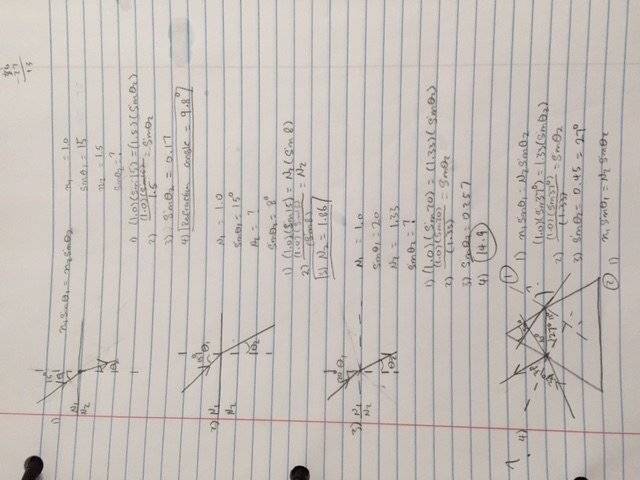 1)
n₁ sinθ₁ = n₂ sinθ₂
n₁ = 1.0
sinθ₁ = 15
n₂ = 1.5
sinθ₂ = ?
1) (1.0)(sin15) = (1.5)(sinθ₂)
2) (1.0)(sin15) / 1.5 = sinθ₂
3) sinθ₂ = 0.17
4) Refraction angle = 9.8°
15°
N₁
N₂
2)
N₁ = 1.0
sinθ₁ = 15°
N₂ = ?
sinθ₂ = 8°
1) (1.0)(sin15) = N₂ (sin8)
2) (1.0)(sin15) / (sin8) = N₂
3) N₂ = 1.86
15° θ₁
θ₂
N₁
N₂
3)
N₁ = 1.0
sinθ₁ = 20
N₂ = 1.33
sinθ₂ = ?
1) (1.0)(sin20) = (1.33)(sinθ₂)
2) (1.0)(sin20) / (1.33) = sinθ₂
3) sinθ₂ = 0.257
4) 14.9
20° θ₁
θ₂
N₁
N₂
4)
① 1) n₁ sinθ₁ = N₂ sinθ₂
(1.0)(sin37°) = 1.33 (sinθ₂)
2) (1.0)(sin37°) / (1.33) = sinθ₂
3) sinθ₂ = 0.45 = 27°
② 1) n₁ sinθ₁ = N₂ sinθ₂
27°